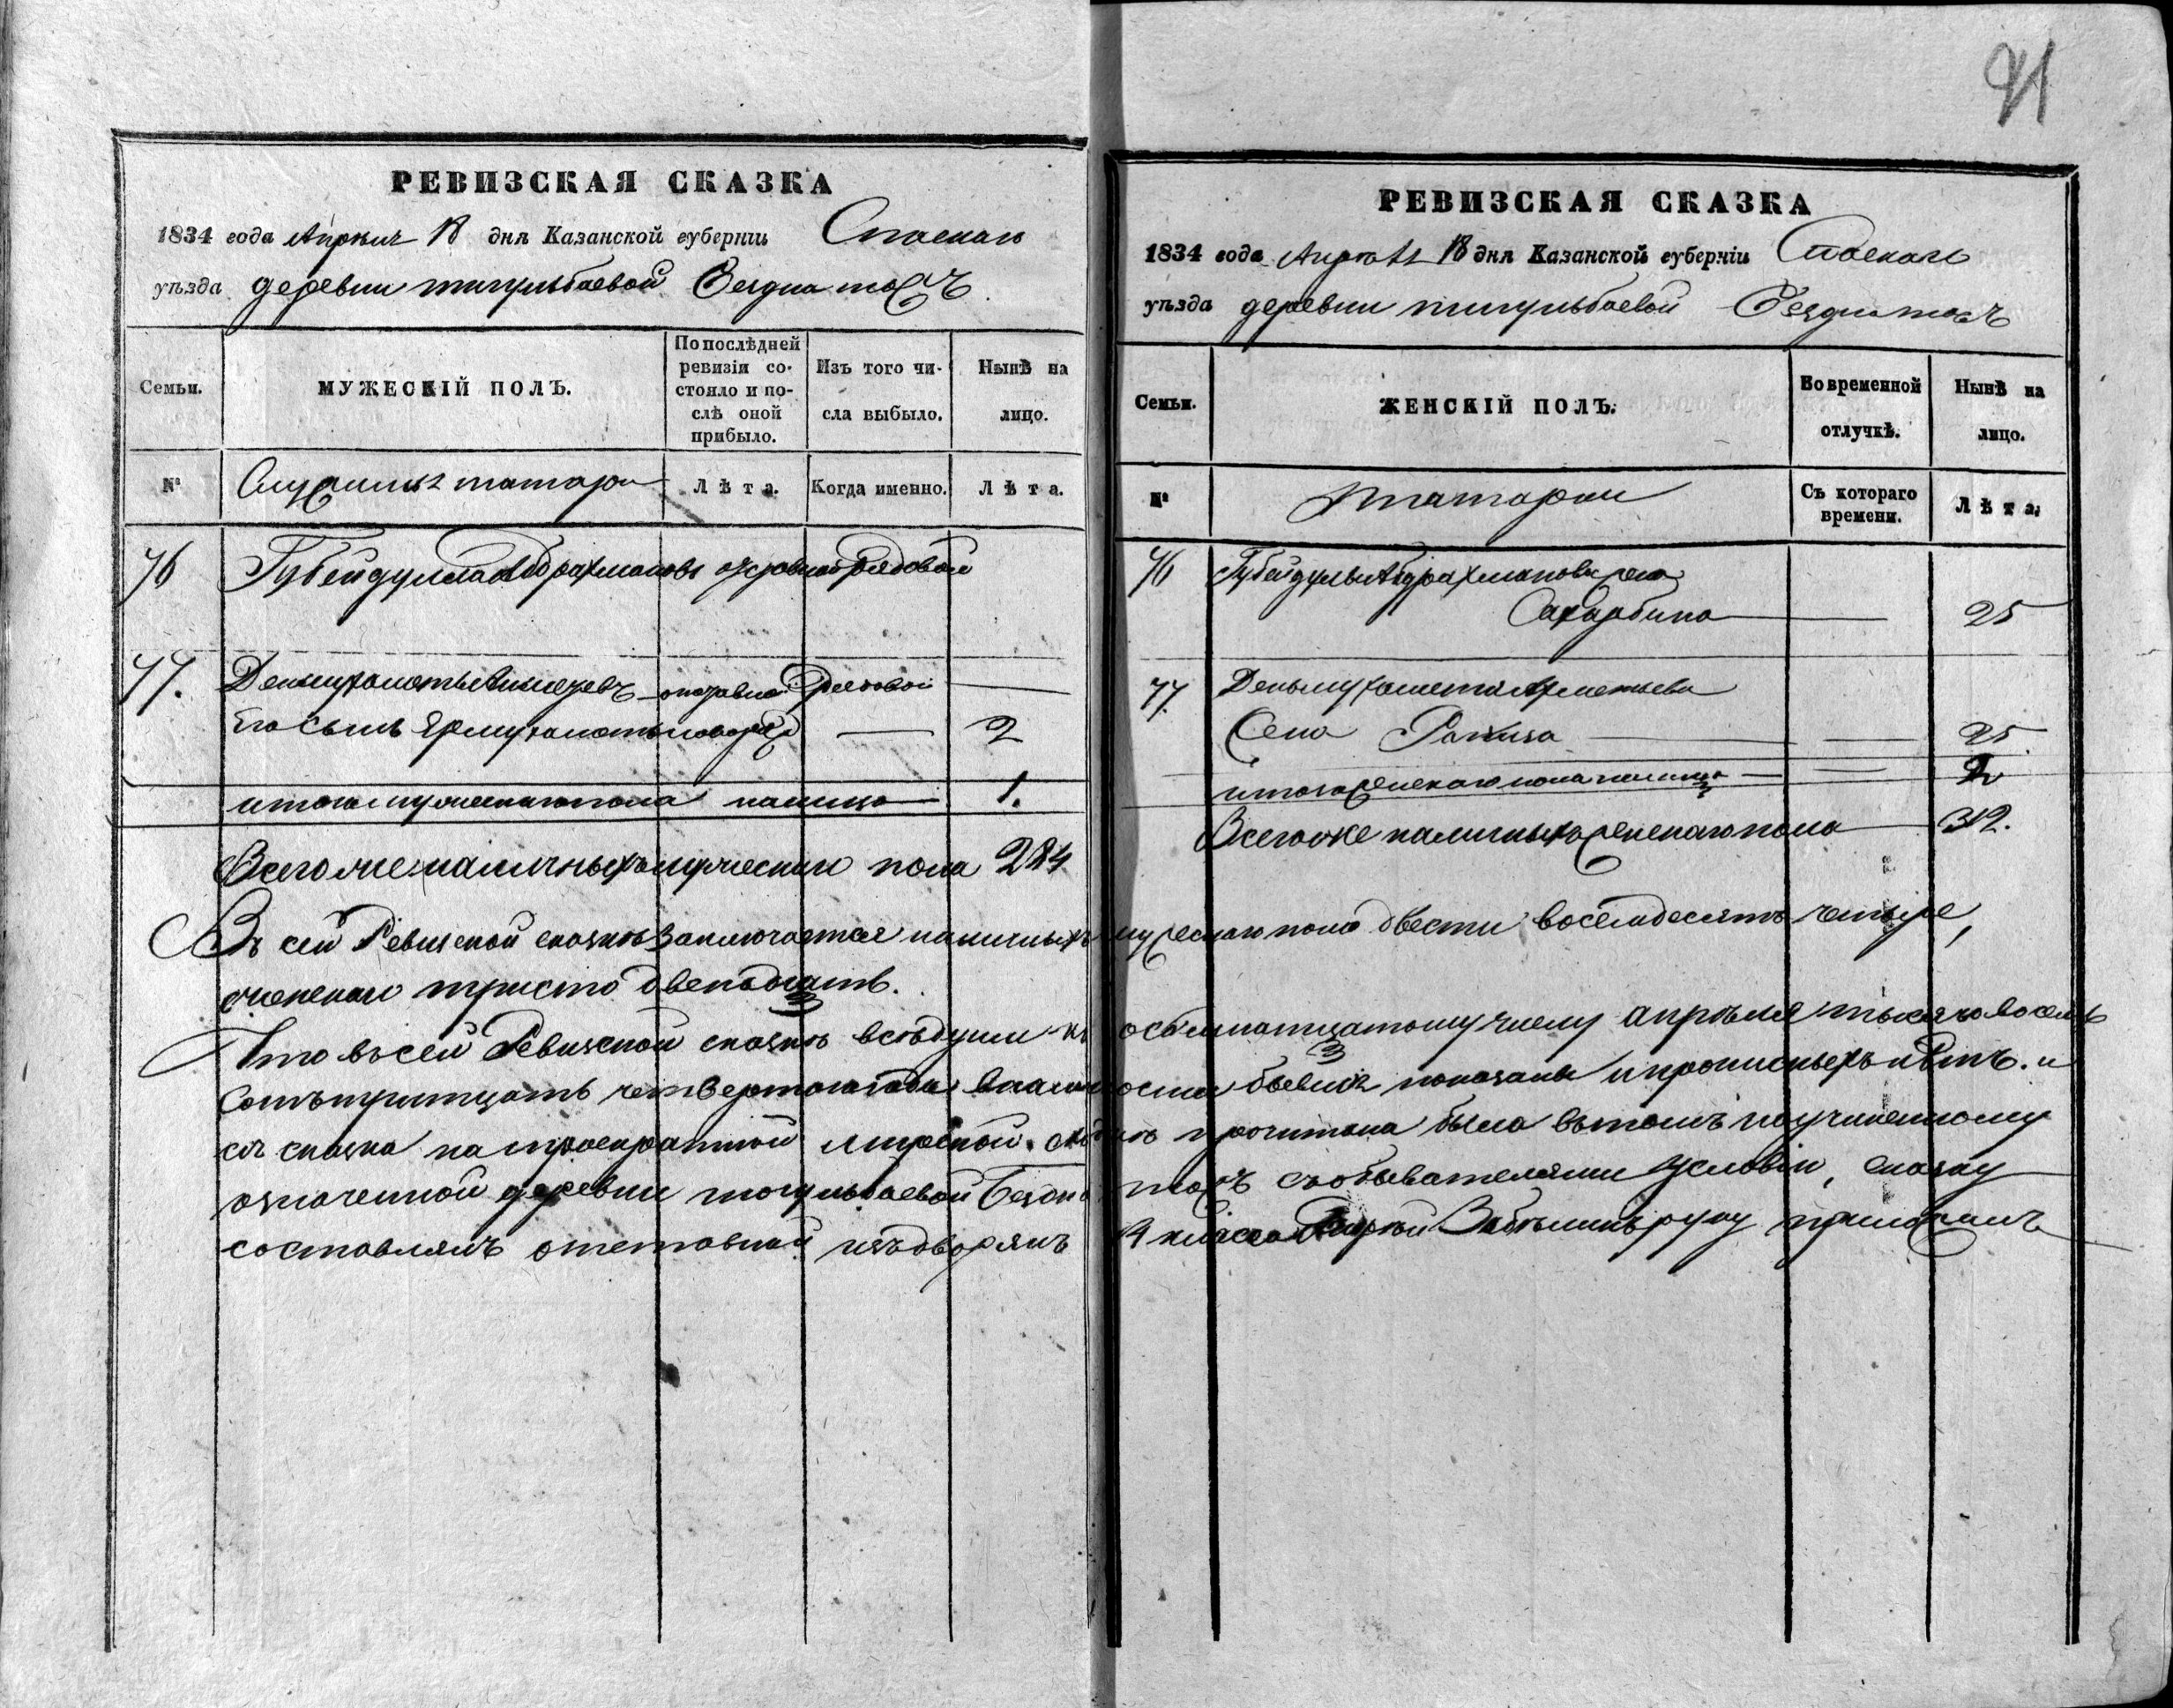 РЕВИЗСКАЯ СКАЗКА
1834 года Апрѣля 18 дня Казанской губернiи Спаскаго
уѣзда деревни тигульбаевой Бездна тожъ
Семьи.
МУЖЕСКIЙ ПОЛЪ.
По послѣдней ревизiи со-
стояло и по-
слѣ оной
прибыло.
Изъ того чи-
сла выбыло.
Нынѣ на
лицо.
№
татары
Лѣта.
Когда именно.
Лѣта.
76 Губейдулла Абдрахмановъ рядовой
77. рядовой
Его сынъ 2
итого мужескаго пола налицо 1.
Всего же наличныхъ мужескаго пола 284
91
РЕВИЗСКАЯ СКАЗКА
1834 года Апрѣля 18 дня Казанской губернiи Спаскаго
уѣзда деревни тигульбаевой Бездна тожъ
Семьи.
ЖЕНСКIЙ ПОЛЪ.
Во временной
отлучкѣ.
Нынѣ на
лицо.
№
татарки
Съ котораго
времени.
Лѣта.
76 Губейдуллы Абдрахманова жена
25
77.
Жена 25.
итого женскаго пола налицо 2
Всего же наличныхъ женскаго пола 312.
Въ сей Ревизской сказкѣ заключается наличныхъ мужескаго пола двести восемдесятъ четыре,
женскаго триста двенадцать.
Что въ сей Ревизской сказкѣ всѣ души къ осьмнатцатому числу апрѣля тысяча восемь
сотъ тритцать четвертаго года в наличности бывшiя показаны и прописныхъ нѣтъ. и
сiя сказка на мирской прочитана была въ томъ по учиненному
означенной деревни тигульбаевой Бездна тожъ съ обывателями условiю, сказку
составлялъ отставной изъ дворянъ 14 класса руку приложилъ